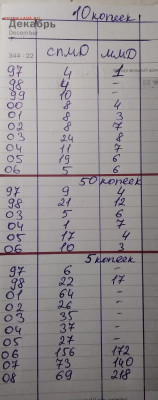 10 копеек
Декабрь
December
344 - 22
СПМД ММД
97 4 1
98 4 -
99 10 -
00 8 4
01 8 3
02 8 7
03 24 8
04 11 7
05 19 6
06 5 6
50 копеек
97 9 4
98 21 12
03 5 6
04 1 7
05 17 4
06 10 3
5 копеек
97 6 -
98 22 17
01 64 -
02 26 -
03 35 -
04 37 -
05 27 -
06 156 172
07 73 140
08 69 218